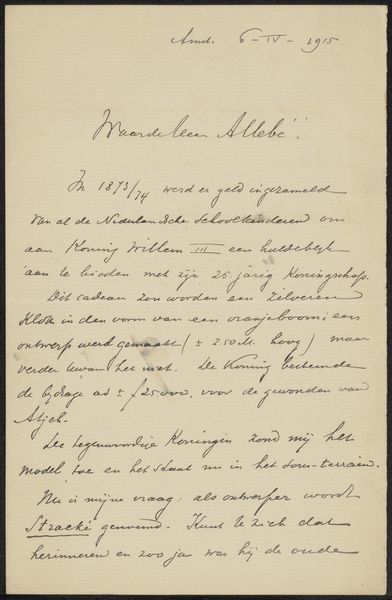 Amst. 6-IV-1915
Waarde heer Allebé!
In 1873/74 werd er geld ingezameld
van al de Nederlandsche Schoolkinderen om
aan Koning Willem III een huldeblijk
aan te bieden met zijn 25 jarig Koningschap.
Dit cadeau zou worden een zilveren
Klok in den vorm van een oranjeboom; een
ontwerp werd gemaakt (± 2.50 M. hoog) maar
verder kwam het niet. De Koning bestemde
de bijdrage ad ± f 25.000, voor de gewonden van
Atjeh.
De tegenwoordige Koningin zond mij het
model toe en het staat nu in het sous-terrain.
Nu is mijne vraag: als ontwerper wordt
Stracké genoemd. Kunt U zich dat
herinneren en zoo ja was hij de oude